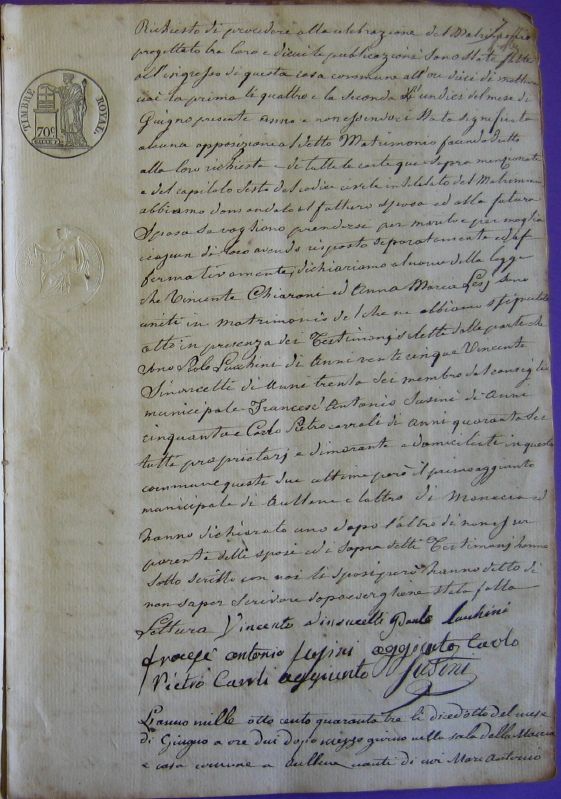 TIMBRE ROYAL
70c
Richiesto di procedere alla celebrazione del Matrimonio
progettato tra loro e di cui le publicazioni sono state fatte
all'ingresso di questa casa commune all'ore dieci di mattina
cioi la prima li quattro e la seconda l'undici del mese di
Giugno presente anno e non essendovi stata significata
alcuna opposizione a detto Matrimonio facendo dritto
alla loro richiesta di tutte le carte que sopra menzionate
e del capitolo sesto del codice civile intitolato del Matrimonio
abbiamo domandato al futturo sposo ed alla futura
sposa se vogliono prendersi per marito e per moglie
ciascun di loro avendo risposto separatamente ed af
fermativamente, dichiariamo al nome della legge
che Vincente Chiaroni ed Anna Maria sono
uniti in matrimonio del che ne abbiamo stipulato
atto in presenza dei Testimonj eletti dalle parte che
sono Polo Lucchini di Anni vente cinque Vincente
Sinarcelli di Anni trenta sei membro del consiglio
municipale Francesc' Antonio Susini di Anni
cinquanta e Carlo Pietro di Anni quaranta sei
tutti proprietarj e dimorante e domiciliati in questa
commune questi due ultimi però il primo aggiunto
municipale di Aullene e l'altro di Monaccia ed
hanno dichiarato uno dopo l'altro di non esser
parenti delli sposi ed i sopra detti Testimonj hanno
sotto scritto con noi li sposi però hanno detto di
non saper scrivere dopo averghene stata fatta
lettura Vincente Sinarcelli Paulo Lucchini
antonio susini aggiunto Carlo
Pietro aggiunto Susini
L'anno mille otto cento quaranta tre li dicedotto del mese
di Giugno a ore due dopo mezzo giorno nella sala della
e casa comune a Aullene avanti di noi Marc Antonio